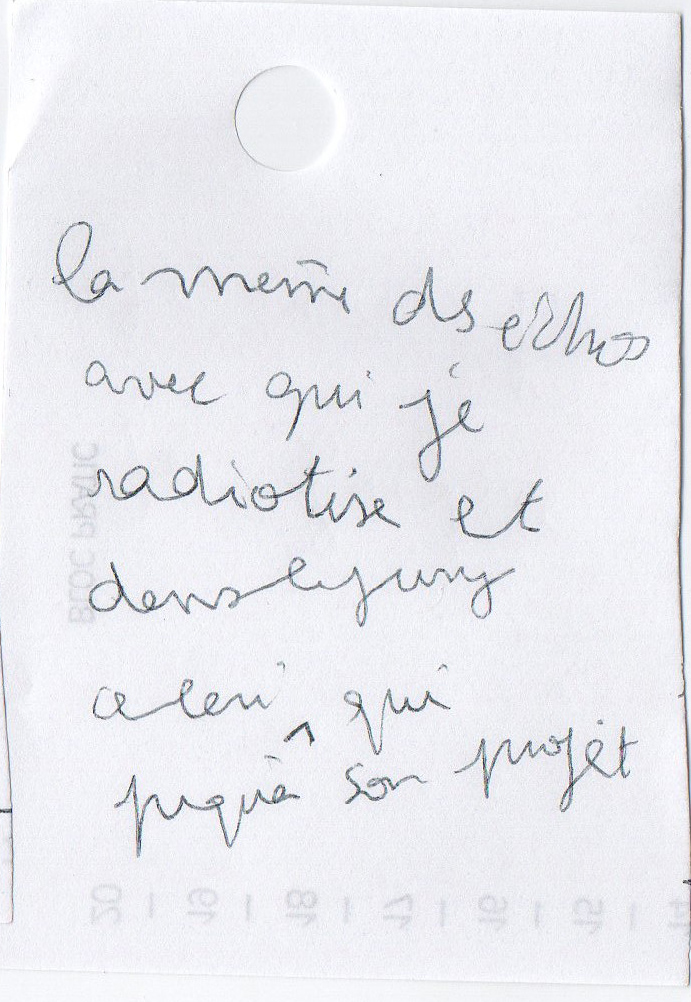 la même ds échos
avec qui je
radiotise et
dans le jury
celui qui
^
son projet
BLOC PRATIC
20 - 19 - 18 - 17 - 16 - 15 - 14